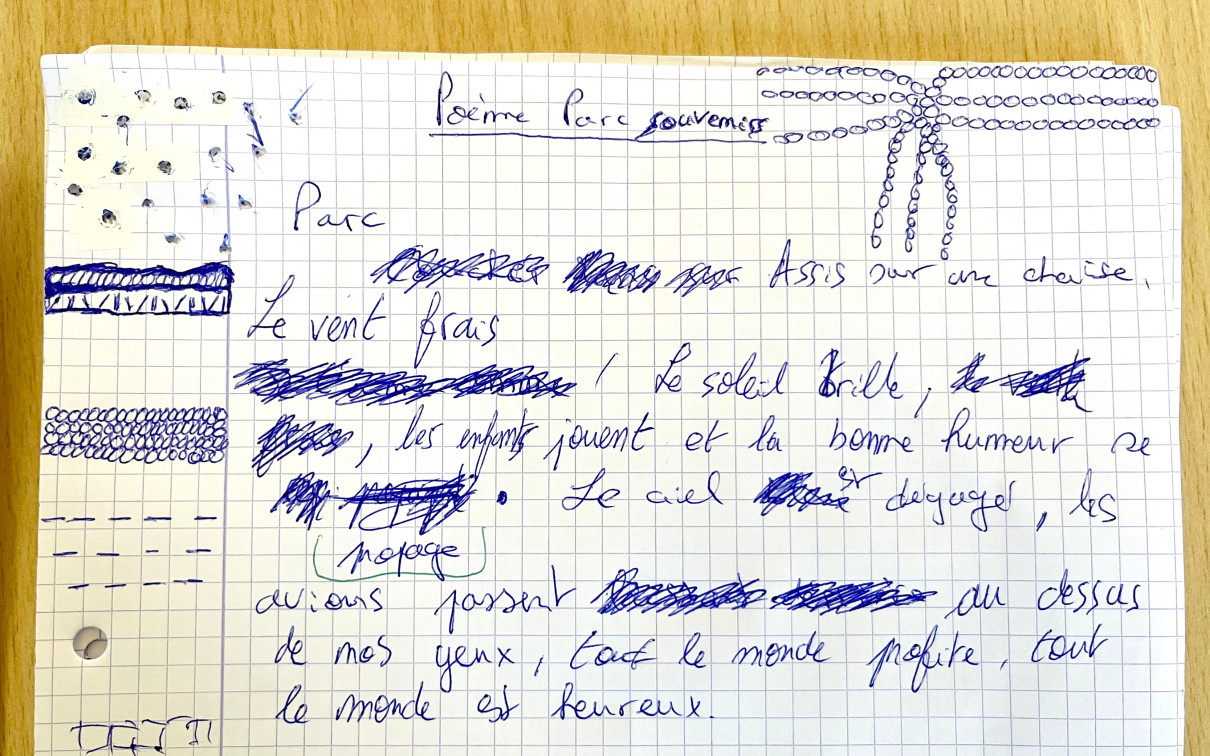 Poème Parc souvenirs
Parc
Assis sur une chaise,
Le vent frais
! Le soleil brille,
, les enfants jouent et la bonne humeur se
. Le ciel est dégagé, les
propage
avions passent au dessus
de nos yeux, tout le monde profite, tout
le monde est heureux.